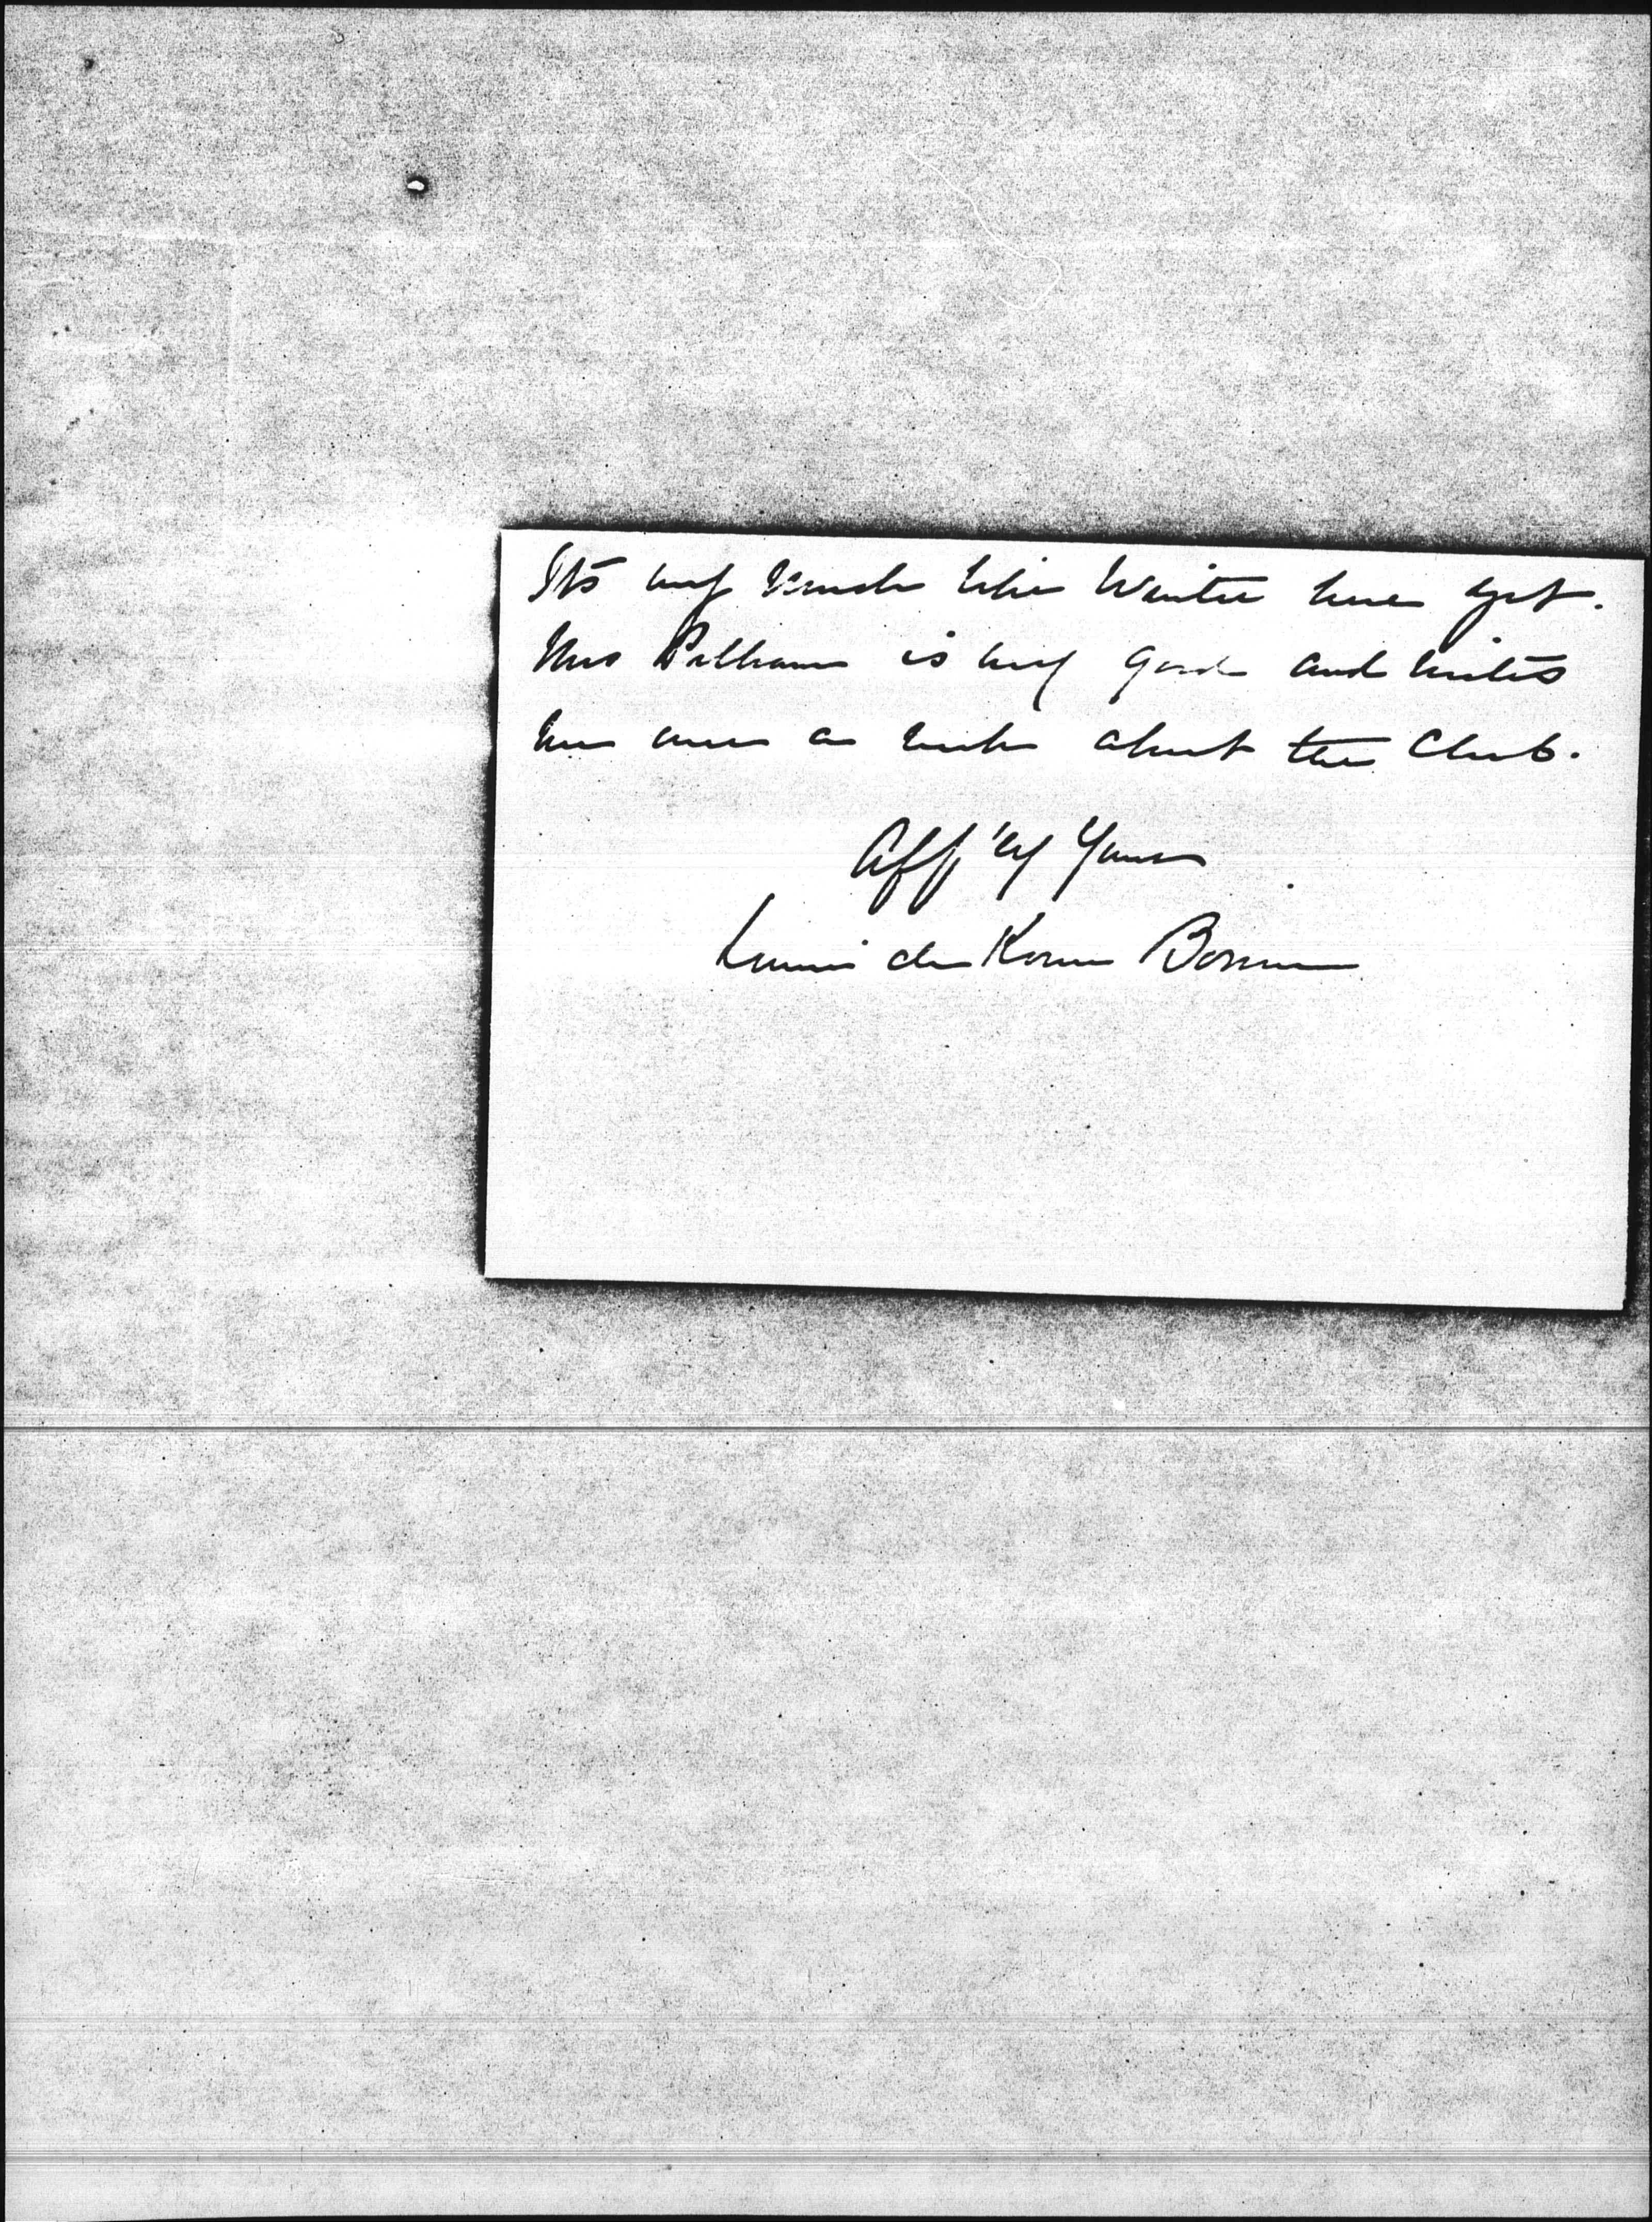 Its very much like Winter here yet.
Mrs Pelham is very good and writes
me once a week about the Club.
Aff'ly Yours
de Koven Bowen